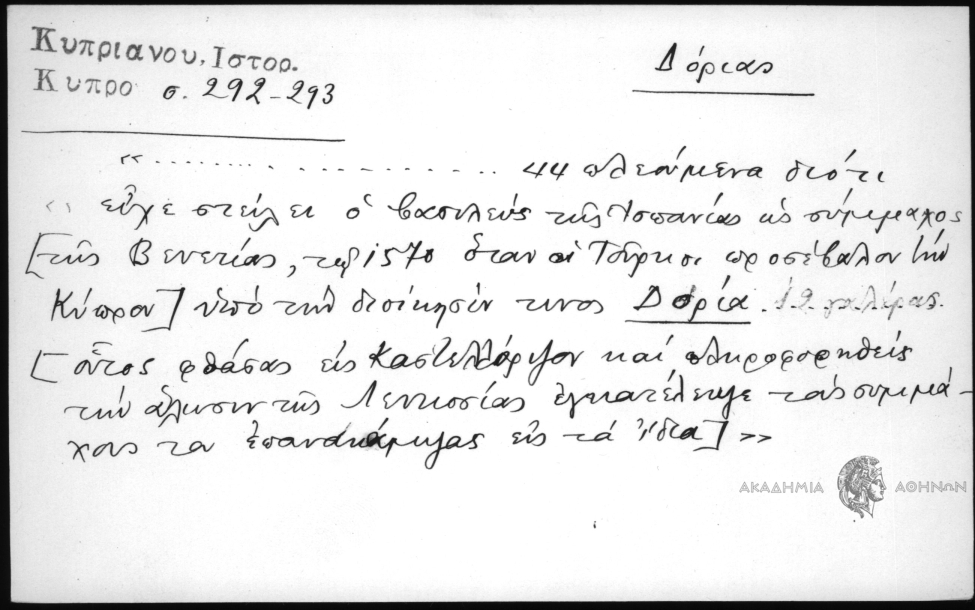 Κυπριανου, Ιστορ.
Κυπρο σ. 292-293
Δόριας
«.................... 44 πλεούμενα διότι
« εἶχε στείλει ὁ βασιλεύς τῆς Ἱσπανίας ὡς σύμμαχος
[τῆς Βενετίας, τῷ 1570 ὅταν οἱ Τοῦρκοι προσέβαλον τήν
Κύπρον] ὑπό τήν διοίκησίν τινος Δόρία. 12 γαλέρας.
[οὗτος φθάσας εἰς Καστελλόριζον καί πληροφορηθείς
τήν ἅλωσιν τῆς Λευκωσίας ἐγκατέλειψε τούς συμμά-
χους του ἐπανακάμψας εἰς τά ἴδια] »
ΑΚΑΔΗΜΙΑ ΑΘΗΝΩΝ